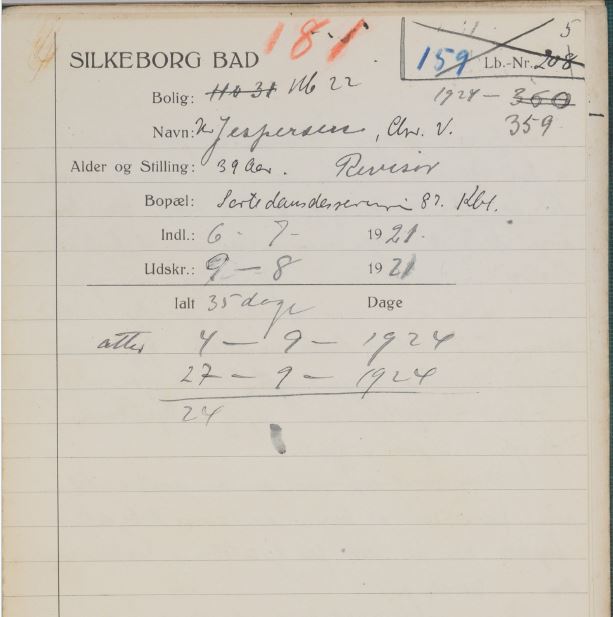 181
5
SILKEBORG BAD
159 Lb.-Nr. 208
Bolig: No 31 Nb 22
1924 — 360
Navn: Hr Jespersen, Chr. V. 359
Alder og Stilling: 39 Aar. Revisor
Bopæl: Sortedamsdosseringen 87. Kbh.
Indl.: 6 - 7 - 1921.
Udskr.: 9 — 8 1921
Ialt 35 dage Dage
atter 4 — 9 — 1924
27 — 9 — 1924
24